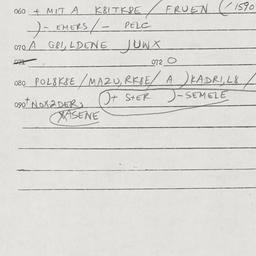 060 + MIT A K8ITK8E / FRUEN (/1590
)- EMERS /- PELC
070 A G8I,LDENE JUWX
071 072 O
080 POL8K8E / MAZU,RK8E / A )KADRI,L8 /
090 + NOX2DER, )+ S+ER )- SEMELE
X)SENE